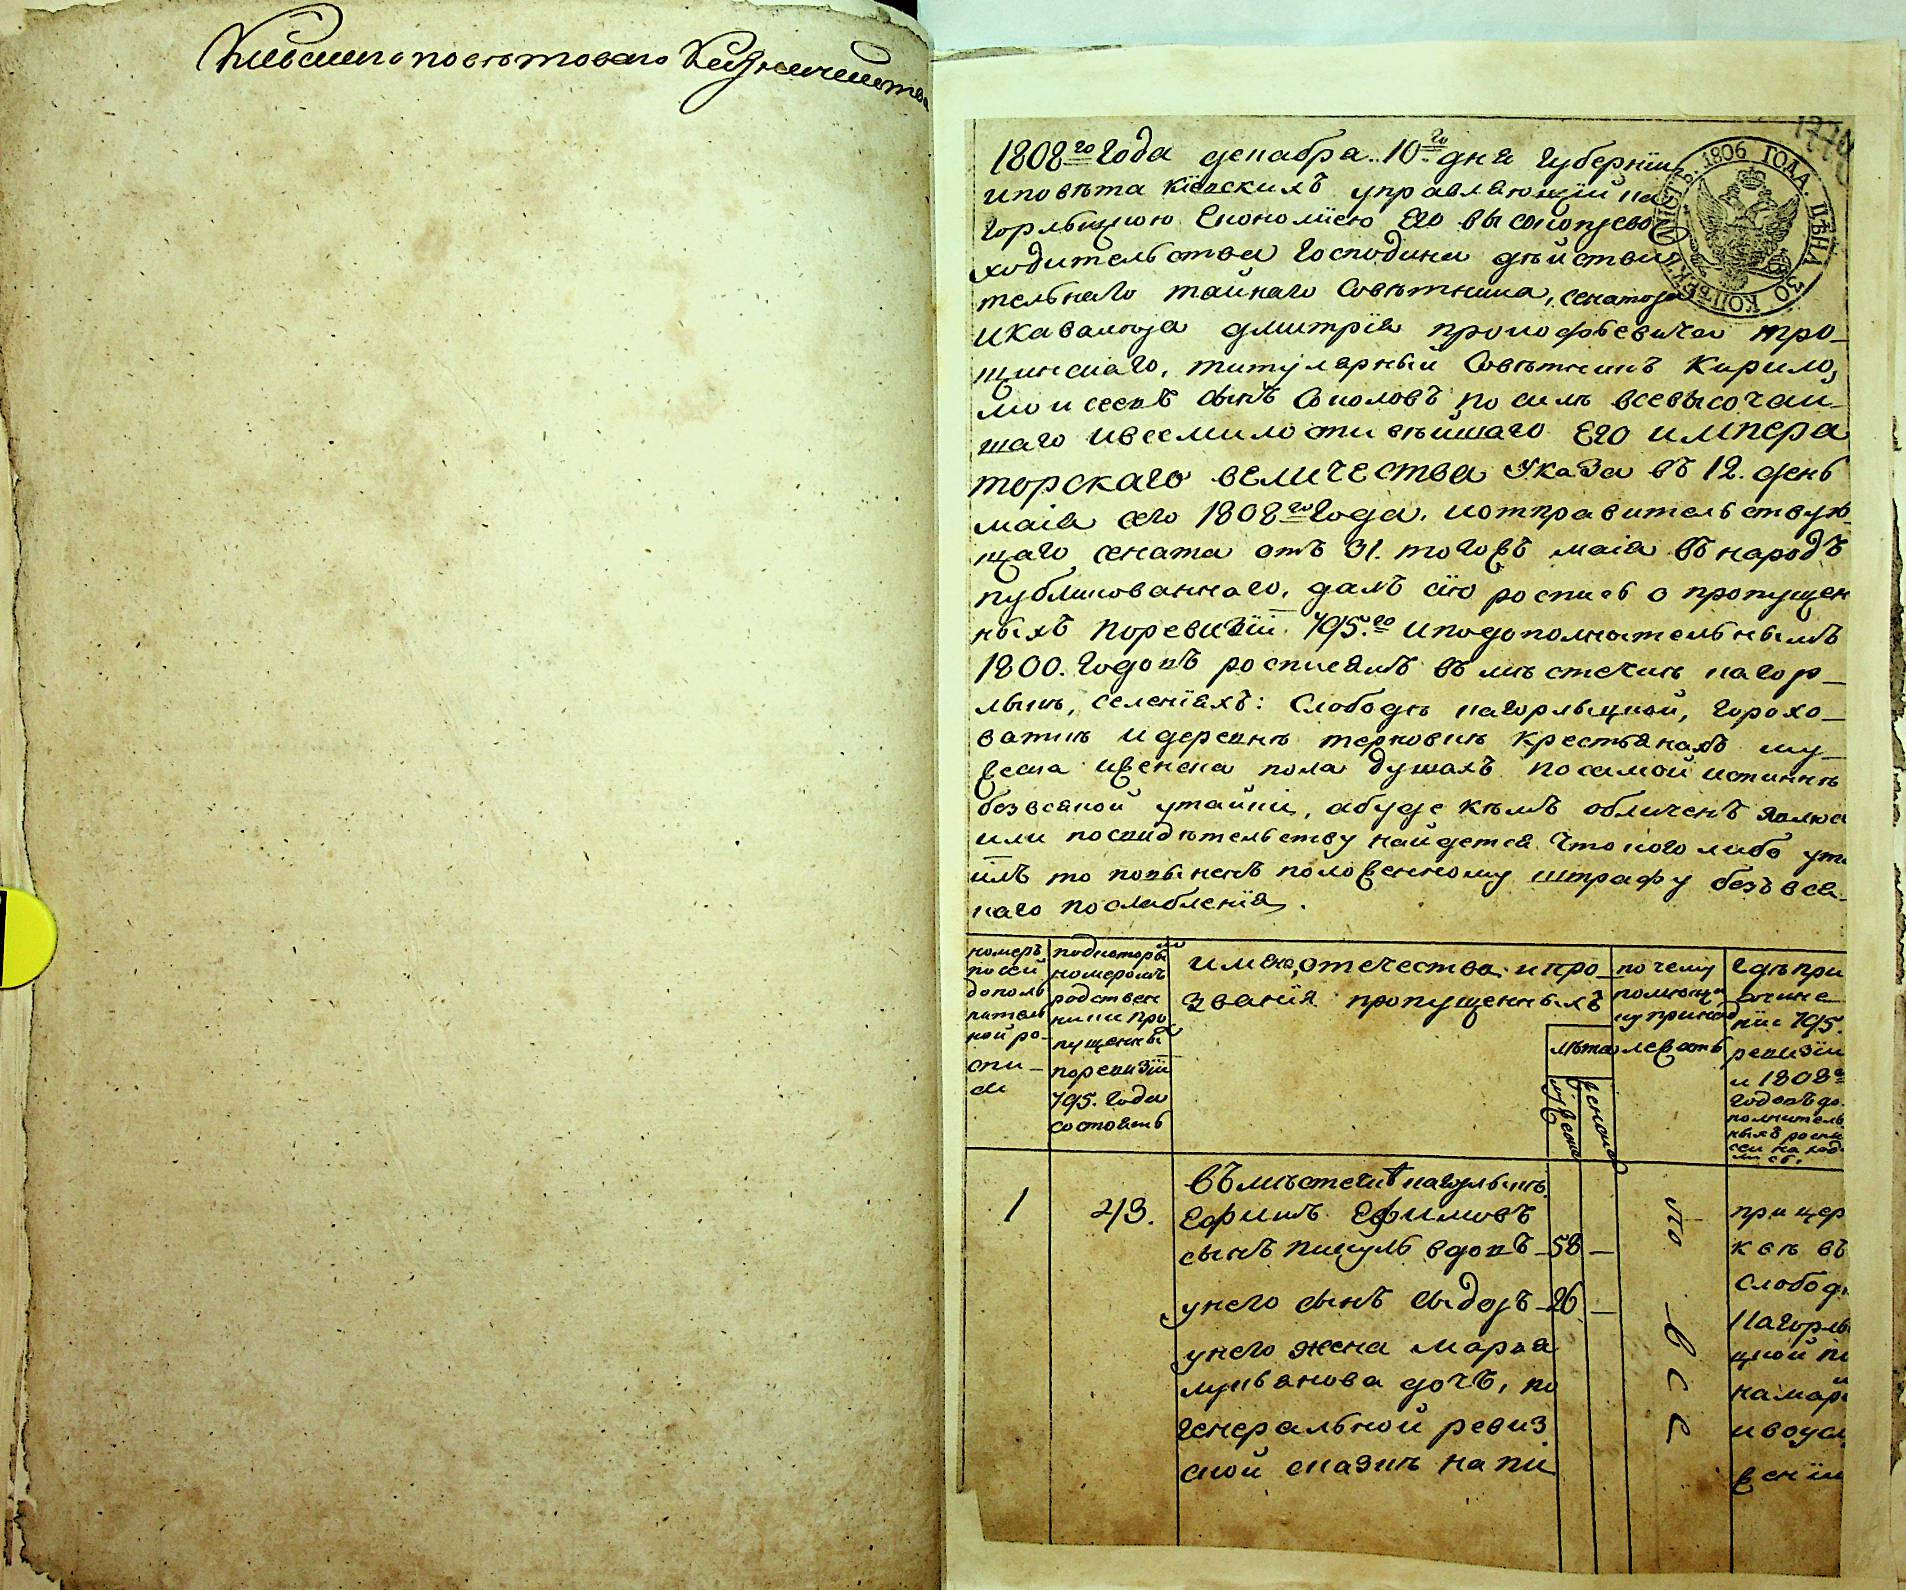 Киевского поветоваго Казначейства
1774
1806 ГОДА. ЦѢНА 30 КОПѢЕКЪ
1808го Года декабря 10го дня Губерніи
иповѣта Кіевскихъ управляющій ка
горлыцкою Економіею Его высокопрево
ходительства Господина дѣйстви
тельнаго тайнаго Совѣтника, сенатора
икавалера дмитрія прокофьевича тро_
щинскаго, титулярный Совѣтникъ Кирило,
моисеевъ сынъ Соколовъ по силѣ всевысочай_
шаго ивсемилостивѣйшаго Его импера
торскаго величества Указа въ 12. день
маія сего 1808го Года. иотправительствую
щаго сената отъ 31. тогожъ маія въ народъ
публикованнаго, далъ сію роспись о пропущен
ныхъ поревизіи 795.го иподополнительнымъ
1800. Годовъ росписямъ въ мѣстечкѣ кагор_
лыкѣ, селеніяхъ: Слободѣ кагорлыцкой, горохо_
ваткѣ идеревнѣ терновкѣ крестьянахъ му_
жеска иженска пола душахъ посамой истиннѣ
безвсякой утайки, абуде кѣмъ обличенъ явлюсь
или посвидѣтельству найдется что кого либо ута
илъ то повиненъ положенному штрафу безъ вся_
каго послабленія.
номеръ посей дополнительной ро_
спи_
си
подкоторымъ
номеромъ
родствен
ники про
пущенныхъ
поревизіи
795. года
состоятъ
имена, отечества ипро_
званія пропущенныхъ
лѣта
мужеска
женска
по чему
помѣщи
ку принад
лежатъ
Гдѣ при
сочине
ніи 795.
ревизіи
и 1808го
годовъ до_
полнитель
ныхъ роспи
сеи находи
лись.
1
213.
въмѣстечкѣ кагорлыкѣ
Ефимъ Ефимовъ
сынъ пикуль вдовъ 58 —
унего сынъ сидоръ 26 —
унего жена марья
лукьянова дочь, по
генеральной ревиз
ской сказкѣ напи
по
все
при цер
квѣ въ
слободѣ
Кагорлы
цкой пи
намар